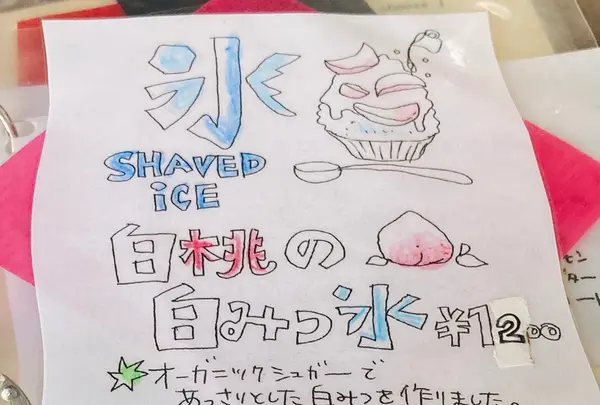 氷
SHAVED
iCE
白桃の
白みつ氷 ¥1200
オーガニックシュガーで
あっさりとした白みつを作りました。